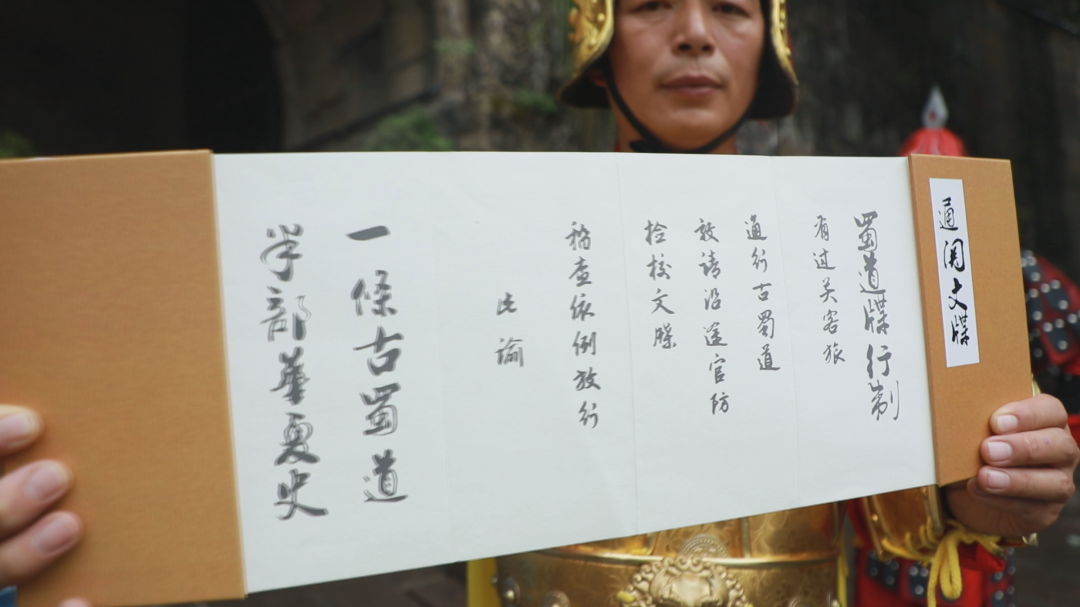 通関文牒
蜀道牒行制
有过关客旅
通行古蜀道
敦请沿途官防
捡校文牒
稽查依例放行
此谕
一條古蜀道
半部華夏史